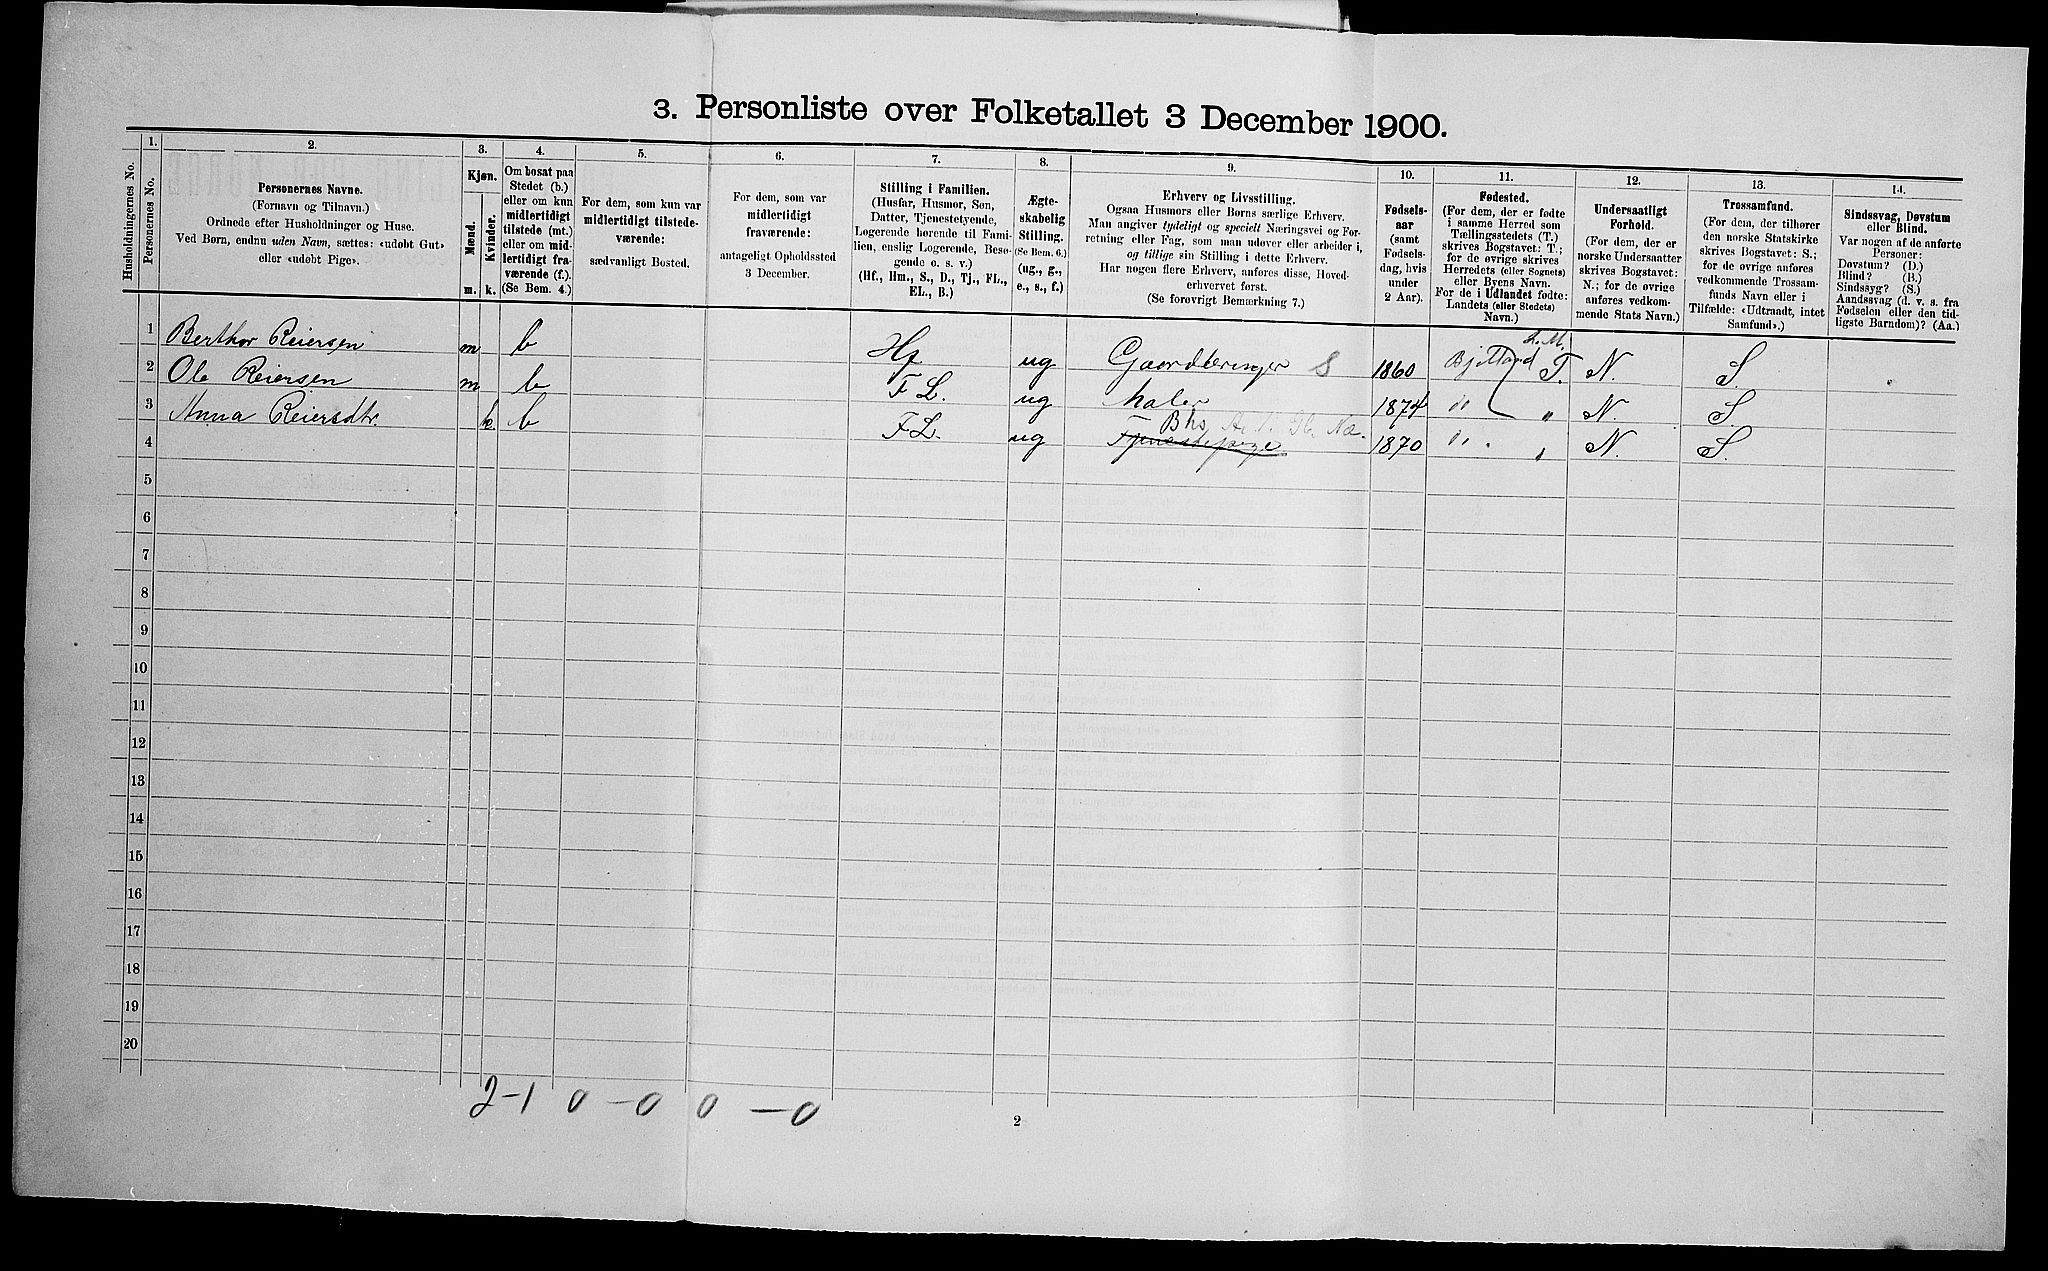 3. Personliste over Folketallet 3 December 1900.
Husholdningernes No.
1.
Personernes No.
2.
Personernes Navne.
(Fornavn og Tilnavn.)
Ordnede efter Husholdninger og Huse.
Ved Børn, endnu uden Navn, sættes: «udøbt Gut»
eller «udøbt Pige».
3.
Kjøn.
Mænd.
Kvinder.
m.
k.
4.
Om bosat paa
Stedet (b.)
eller om kun
midlertidigt
tilstede (mt.)
eller om mid-
lertidigt fra-
værende (f.).
(Se Bem. 4.)
5.
For dem, som kun var
midlertidigt tilstede-
værende:
sædvanligt Bosted.
6.
For dem, som var
midlertidigt
fraværende:
antageligt Opholdssted
3 December.
7.
Stilling i Familien.
(Husfar, Husmor, Søn,
Datter, Tjenestetyende,
Logerende hørende til Fami-
lien, enslig Logerende, Besø-
gende o. s. v.)
(Hf., Hm., S., D., Tj., FL.,
EL., B.)
8.
Ægte-
skabelig
Stilling.
(Se Bem. 6.)
(ug., g.,
e., s., f.)
9.
Erhverv og Livsstilling.
Ogsaa Husmors eller Børns særlige Erhverv.
Man angiver tydeligt og specielt Næringsvei og For-
retning eller Fag, som man udøver eller arbeider i,
og tillige sin Stilling i dette Erhverv.
Har nogen flere Erhverv, anføres disse, Hoved-
erhvervet først.
(Se forøvrigt Bemærkning 7.)
10.
Fødsels-
aar
(samt
Fødsels-
dag, hvis
under
2 Aar).
11.
Fødested.
(For dem, der er fødte
i samme Herred som
Tællingsstedets (T.)
skrives Bogstavet: T.;
for de øvrige skrives
Herredets (eller Sognets)
eller Byens Navn.
For de i Udlandet fødte:
Landets (eller Stedets)
Navn.)
12.
Undersaatligt
Forhold.
(For dem, der er
norske Undersaatter
skrives Bogstavet:
N.; for de øvrige
anføres vedkom-
mende Stats Navn.)
13.
Trossamfund.
(For dem, der tilhører
den norske Statskirke
skrives Bogstavet: S.;
for de øvrige anføres
vedkommende Trossam-
funds Navn eller i
Tilfælde: «Udtraadt, intet
Samfund».)
14.
Sindssvag, Døvstum
eller Blind.
Var nogen af de anførte
Personer:
Døvstum? (D.)
Blind? (B.)
Sindssyg? (S.)
Aandssvag (d. v. s. fra
Fødselen eller den tid-
ligste Barndom)? (Aa.)
1 Berthor Reiersen m b Hf ug Gaardbruger S 1860 Bjelland T. N. S
2 Ole Reiersen m b FL. ug Maler 1874 " " N. S.
3 Anna Reiersdtr. k. b FL. ug Bhs. Tjenestepige 1870 " " N. S.
4
5
6
7
8
9
10
11
12
13
14
15
16
17
18
19
20
2-1 0-0 0-0
2